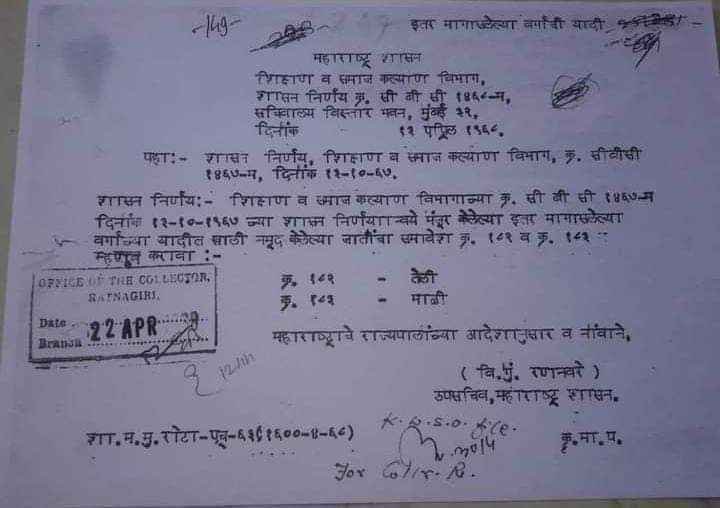 -149-
इतर मागासलेल्या वर्गांची यादी
महाराष्ट्र शासन
शिक्षण व समाज कल्याण विभाग,
शासन निर्णय क्र. सी बी सी १४६८-म,
सचिवालय विस्तार भवन, मुंबई ३२,
दिनांक - १२ एप्रिल १९६८.
पहा:- शासन निर्णय, शिक्षण व समाज कल्याण विभाग, क्र. सीबीसी
१४६७-म, दिनांक १३-१०-६७.
शासन निर्णय:- शिक्षण व समाज कल्याण विभागाच्या क्र. सी बी सी १४६७-म
दिनांक १३-१०-१९६७ च्या शासन निर्णयान्वये मंजूर केलेल्या इतर मागासलेल्या
वर्गांच्या यादीत खाली नमूद केलेल्या जातींचा समावेश क्र. १८२ व क्र. १८३
म्हणून करावा :-
OFFICE OF THE COLLECTOR,
RATNAGIRI.
Date
22 APR
Branch
क्र. १८२ - तेली
क्र. १८३ - माळी
महाराष्ट्राचे राज्यपालांच्या आदेशानुसार व नांवाने,
( वि.मुं. रणनवरे )
उपसचिव, महाराष्ट्र शासन.
शा.म.मु.रोटा-एच-६३९(१६००-४-६८)
कृ.मा.प.
For Collr. R.